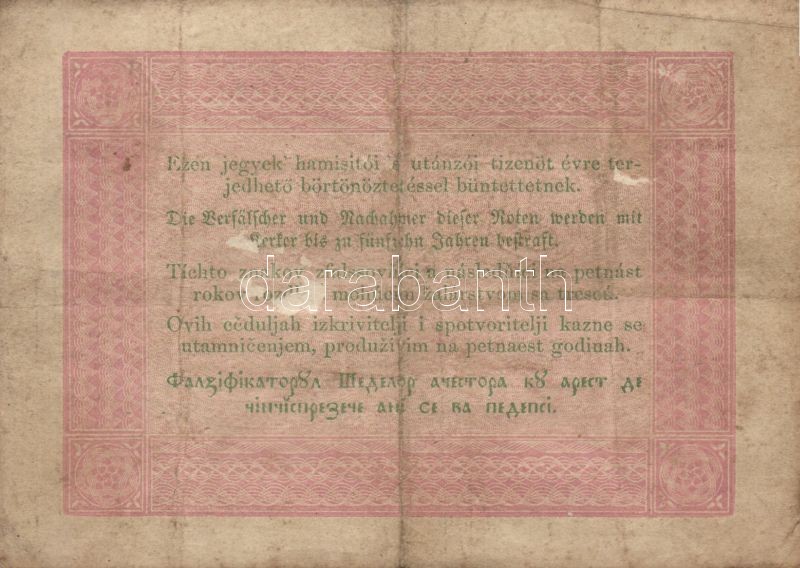 Ezen jegyek hamisitói s utánzói tizenöt évre ter-
jedhető börtönöztetéssel büntettetnek.
Die Verfälscher und Nachahmer dieser Noten werden mit
Kerker bis zu fünfzehn Jahren bestraft.
Tíchto petnást
rokov žalárstvom sa trescú.
Ovih cěduljah izkrivitelji i spotvoritelji kazne se
utamničenjem, produživim na petnaest godinah.
Фалзіфікаторꙋл Шеделор ачестора кꙋ арест де
чінчіспрезече ані се ва педепсі.
darabanth